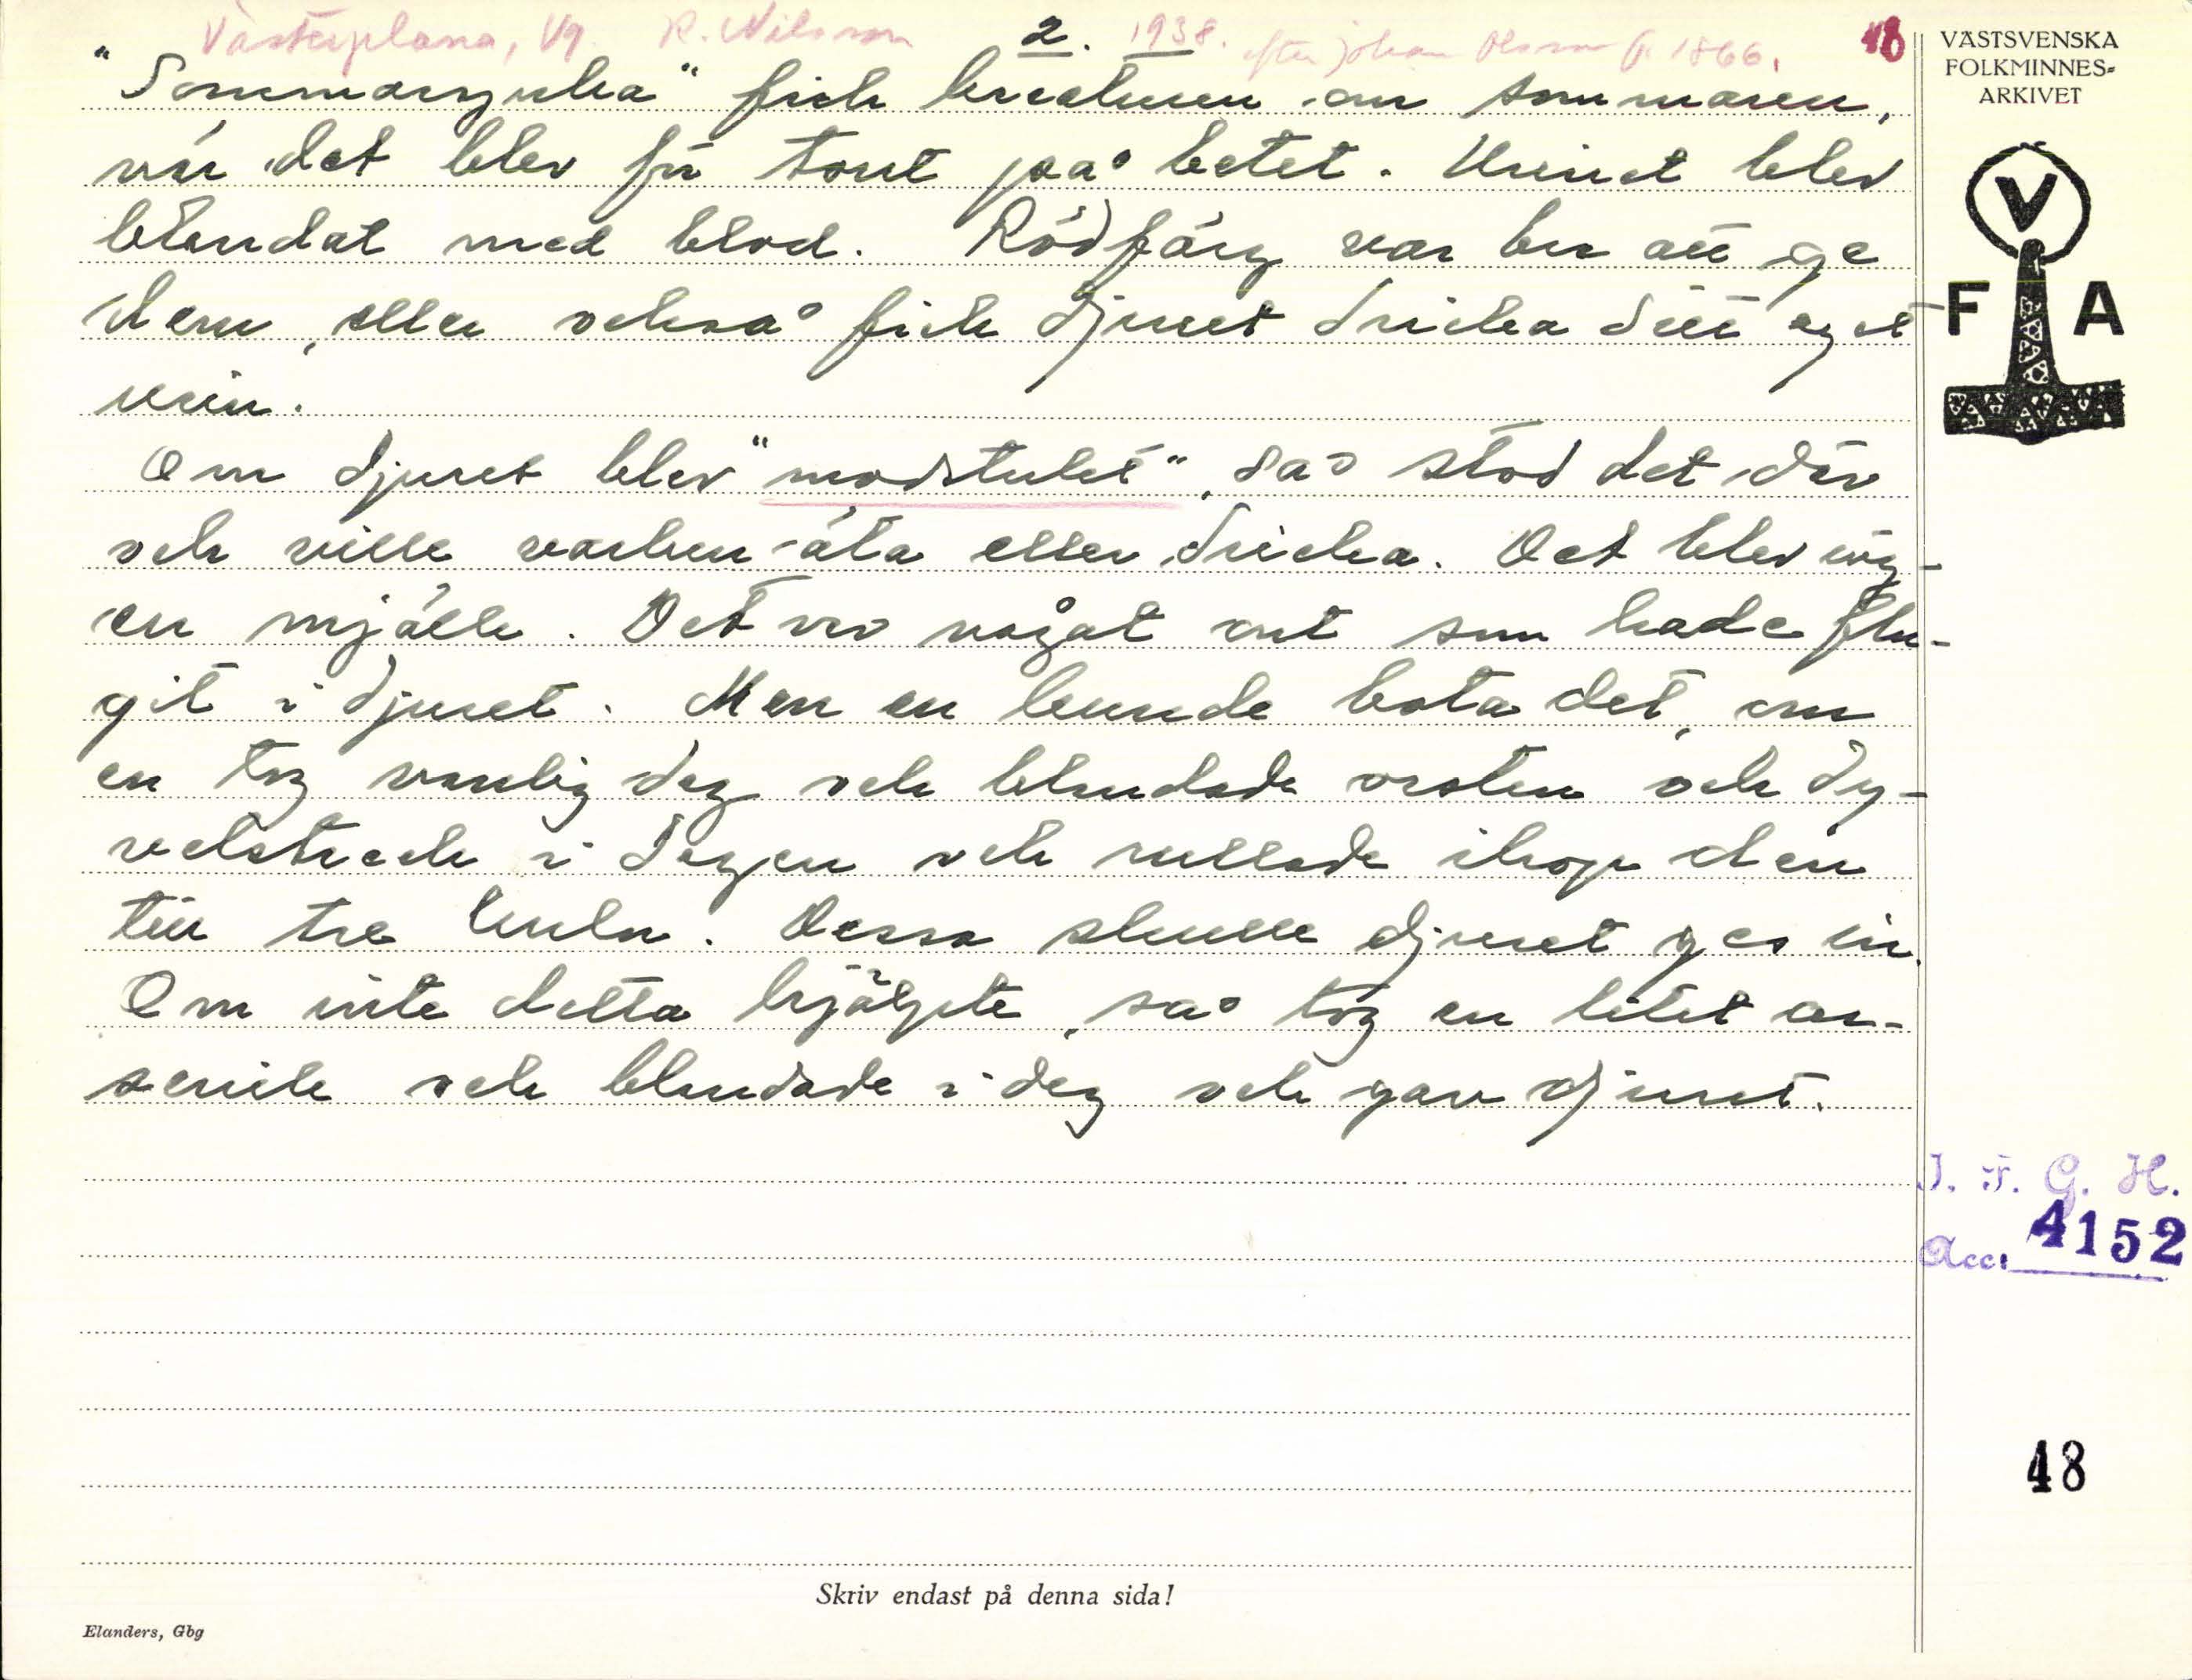 Västerplana, Vg. R. Nilsson 2. 1938. efter Johan Olsson f. 1866. 48
"Sommarsjuka" fick kreaturen om sommaren,
när det blev för tort på betet. Urinet blev
blandat med blod. Rödfärg var bra att ge
dem, eller också fick djuret dricka sitt eget
urin.
Om djuret blev "modstulet", så stod det där
och ville varken äta eller dricka. Det blev ing-
en mjölk. Det var något ont som hade flu-
git i djuret. Men en kunde bota det, om
en tog vanlig deg och blandade orsten och dy-
velsträck i degen och rullade ihop den
till tre kulor. Dessa skulle djuret ges in.
Om inte detta hjälpte, så tog en litet ar-
senik och blandade i deg och gav djuret.
VÄSTSVENSKA
FOLKMINNES-
ARKIVET
V
F A
I. F. G. H.
Acc. 4152
48
Skriv endast på denna sida!
Elanders, Gbg